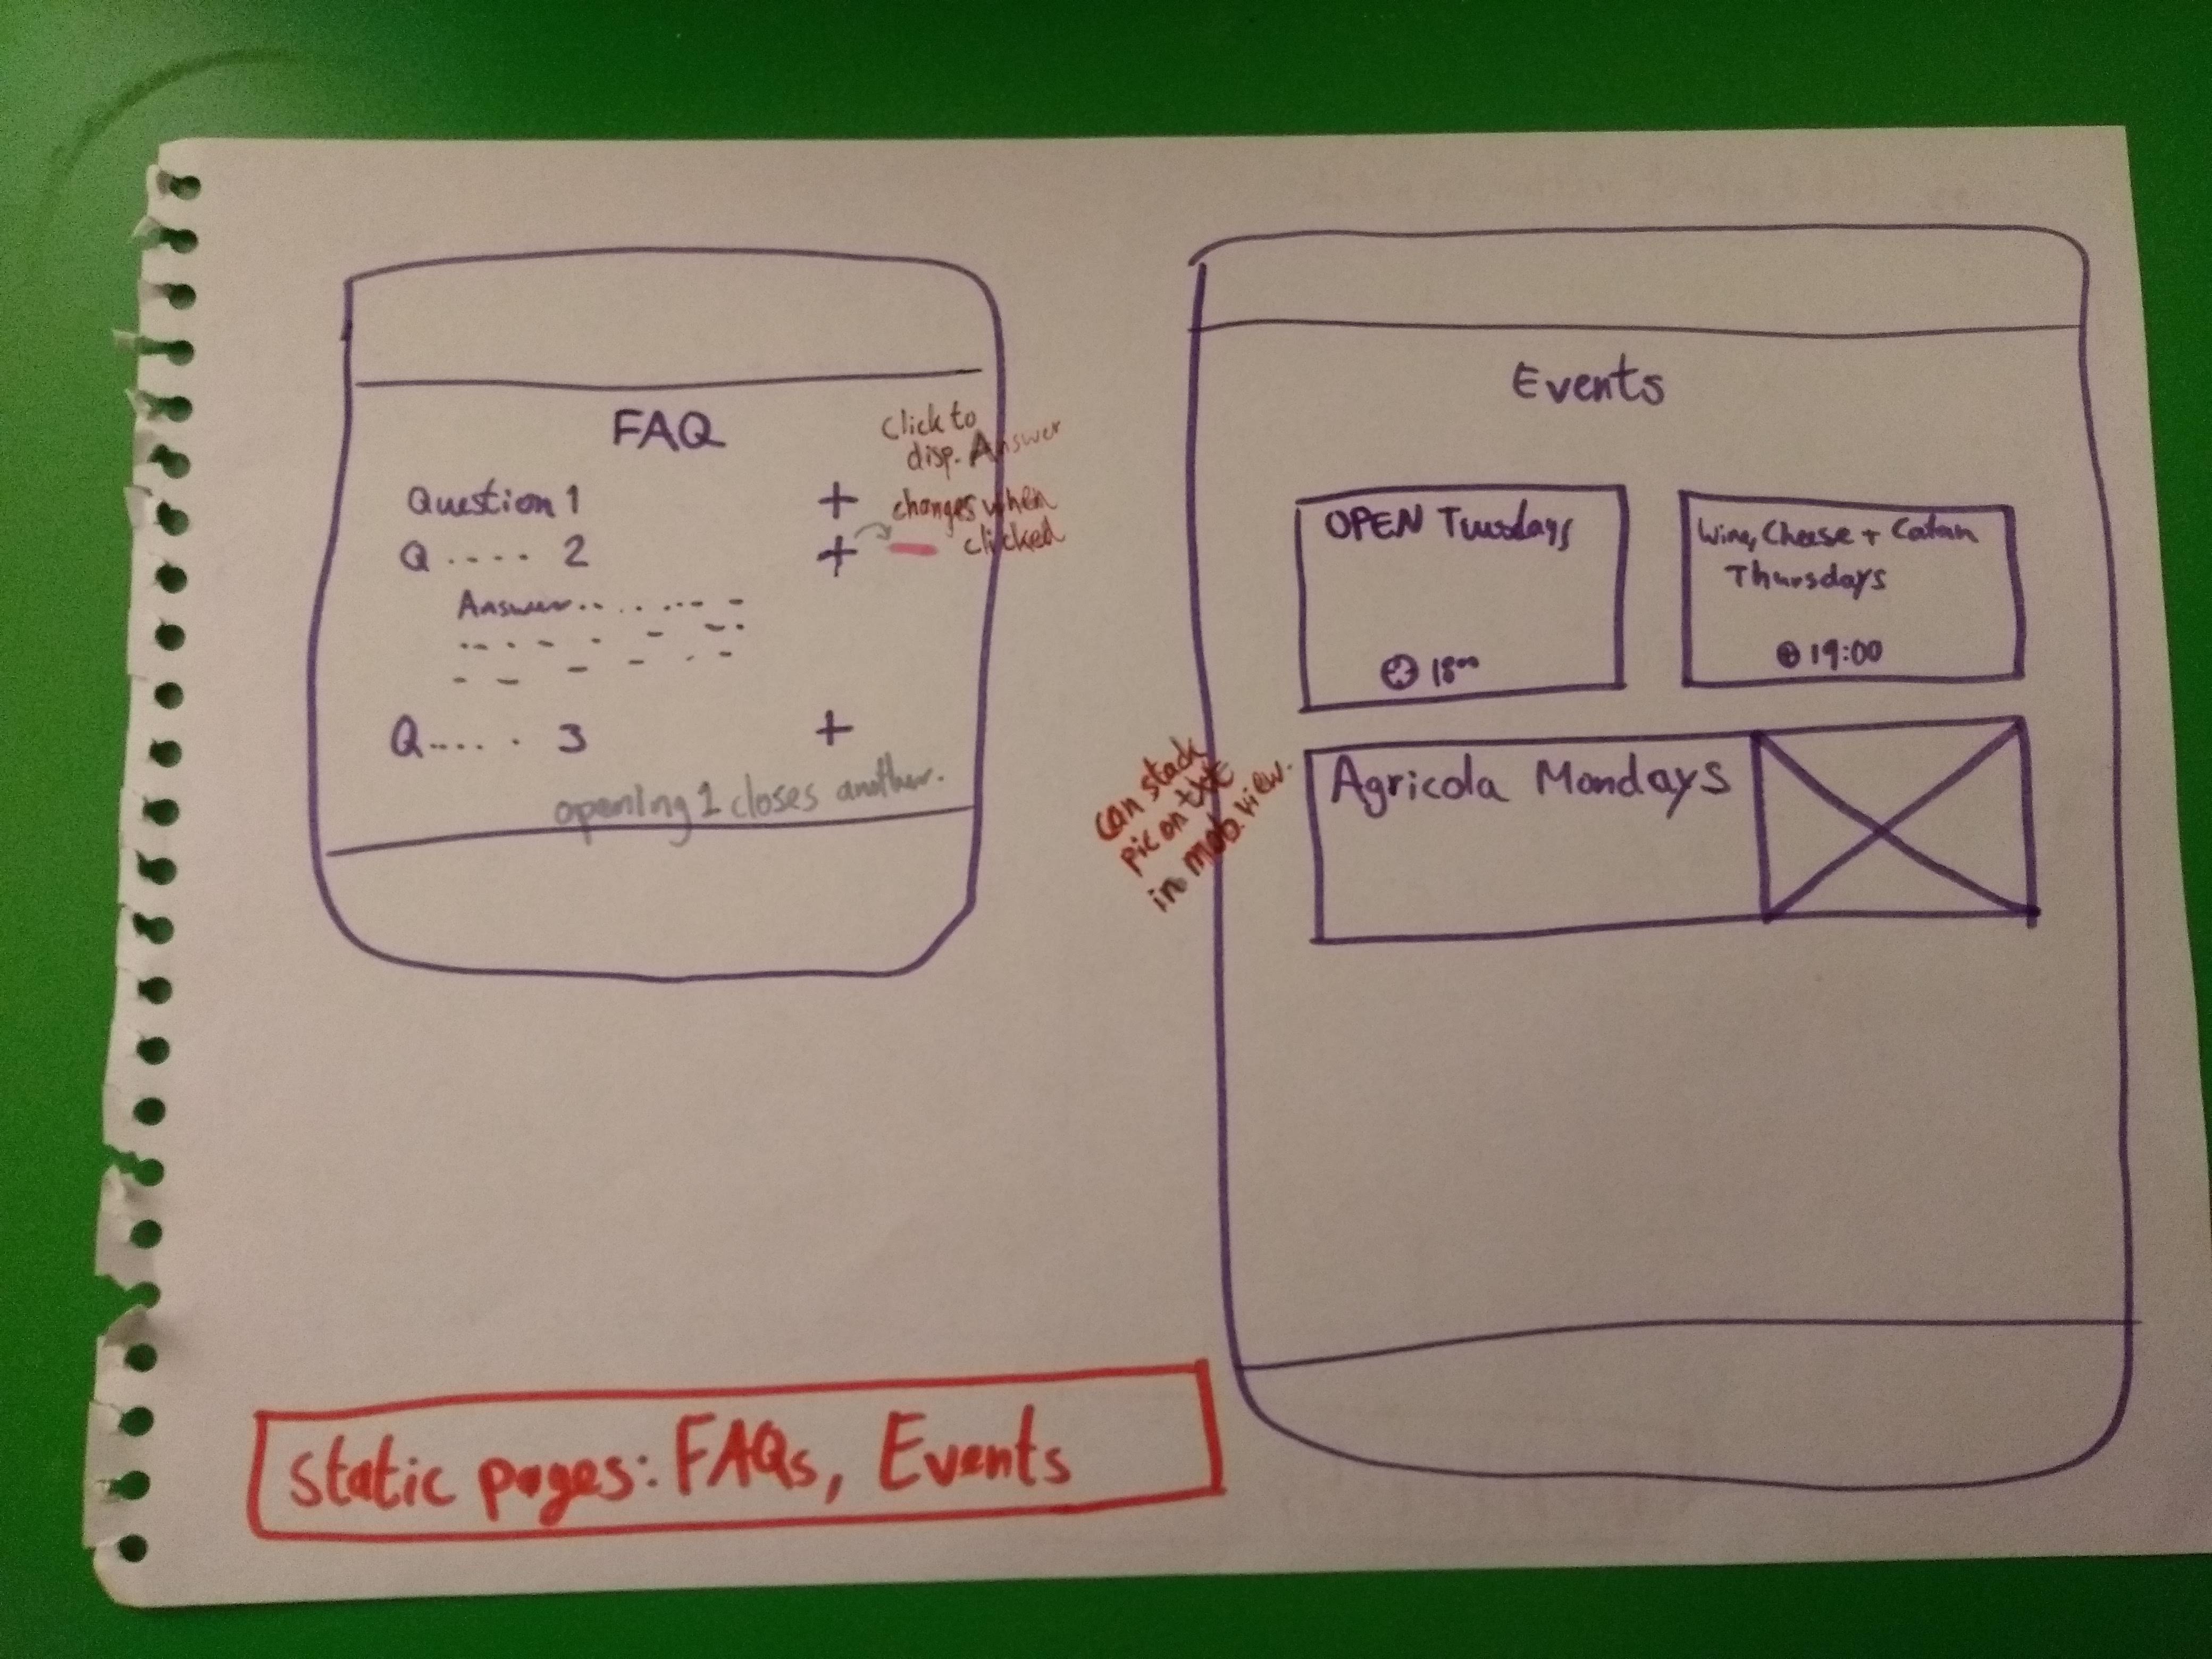 FAQ
Click to
disp. Answer
Question 1 +
changes when
clicked
Q .... 2 + -
Answer.. . . ... -
Q.... . 3 +
opening 1 closes another.
Events
OPEN Tuesdays
18⁰⁰
Wine, Cheese + Catan
Thursdays
19:00
can stack
pic on txt
in mob. view.
Agricola Mondays
static pages: FAQs, Events